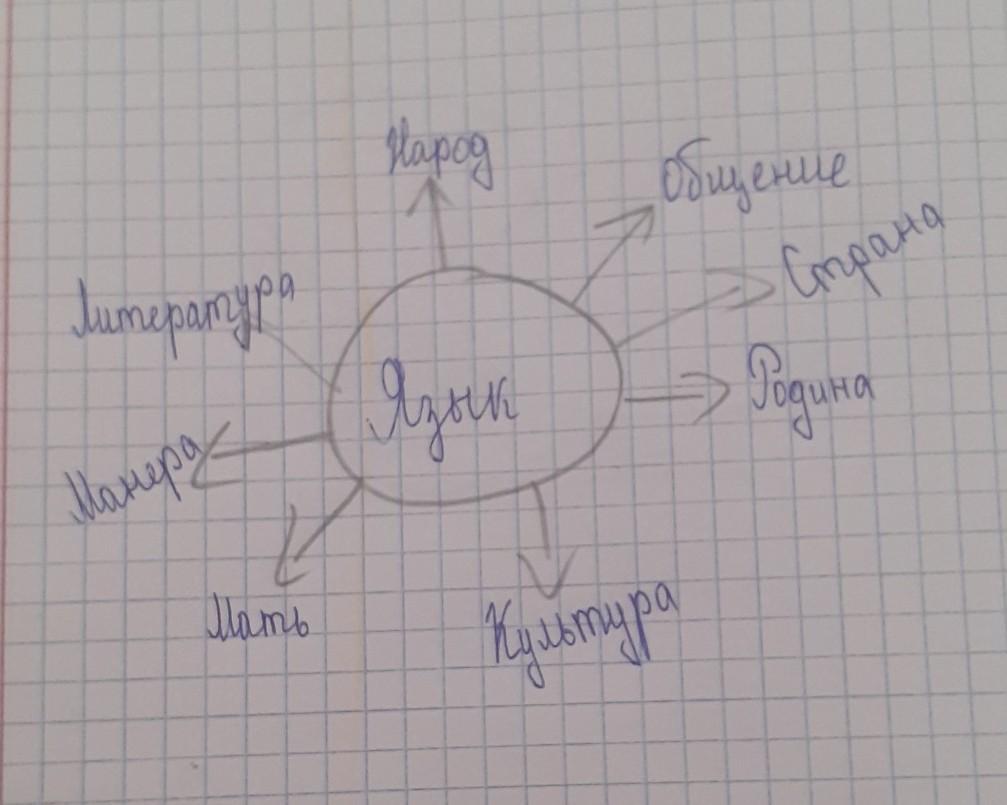 Народ
Общение
Страна
Литература
Язык
Родина
Манера
Мать
Культура